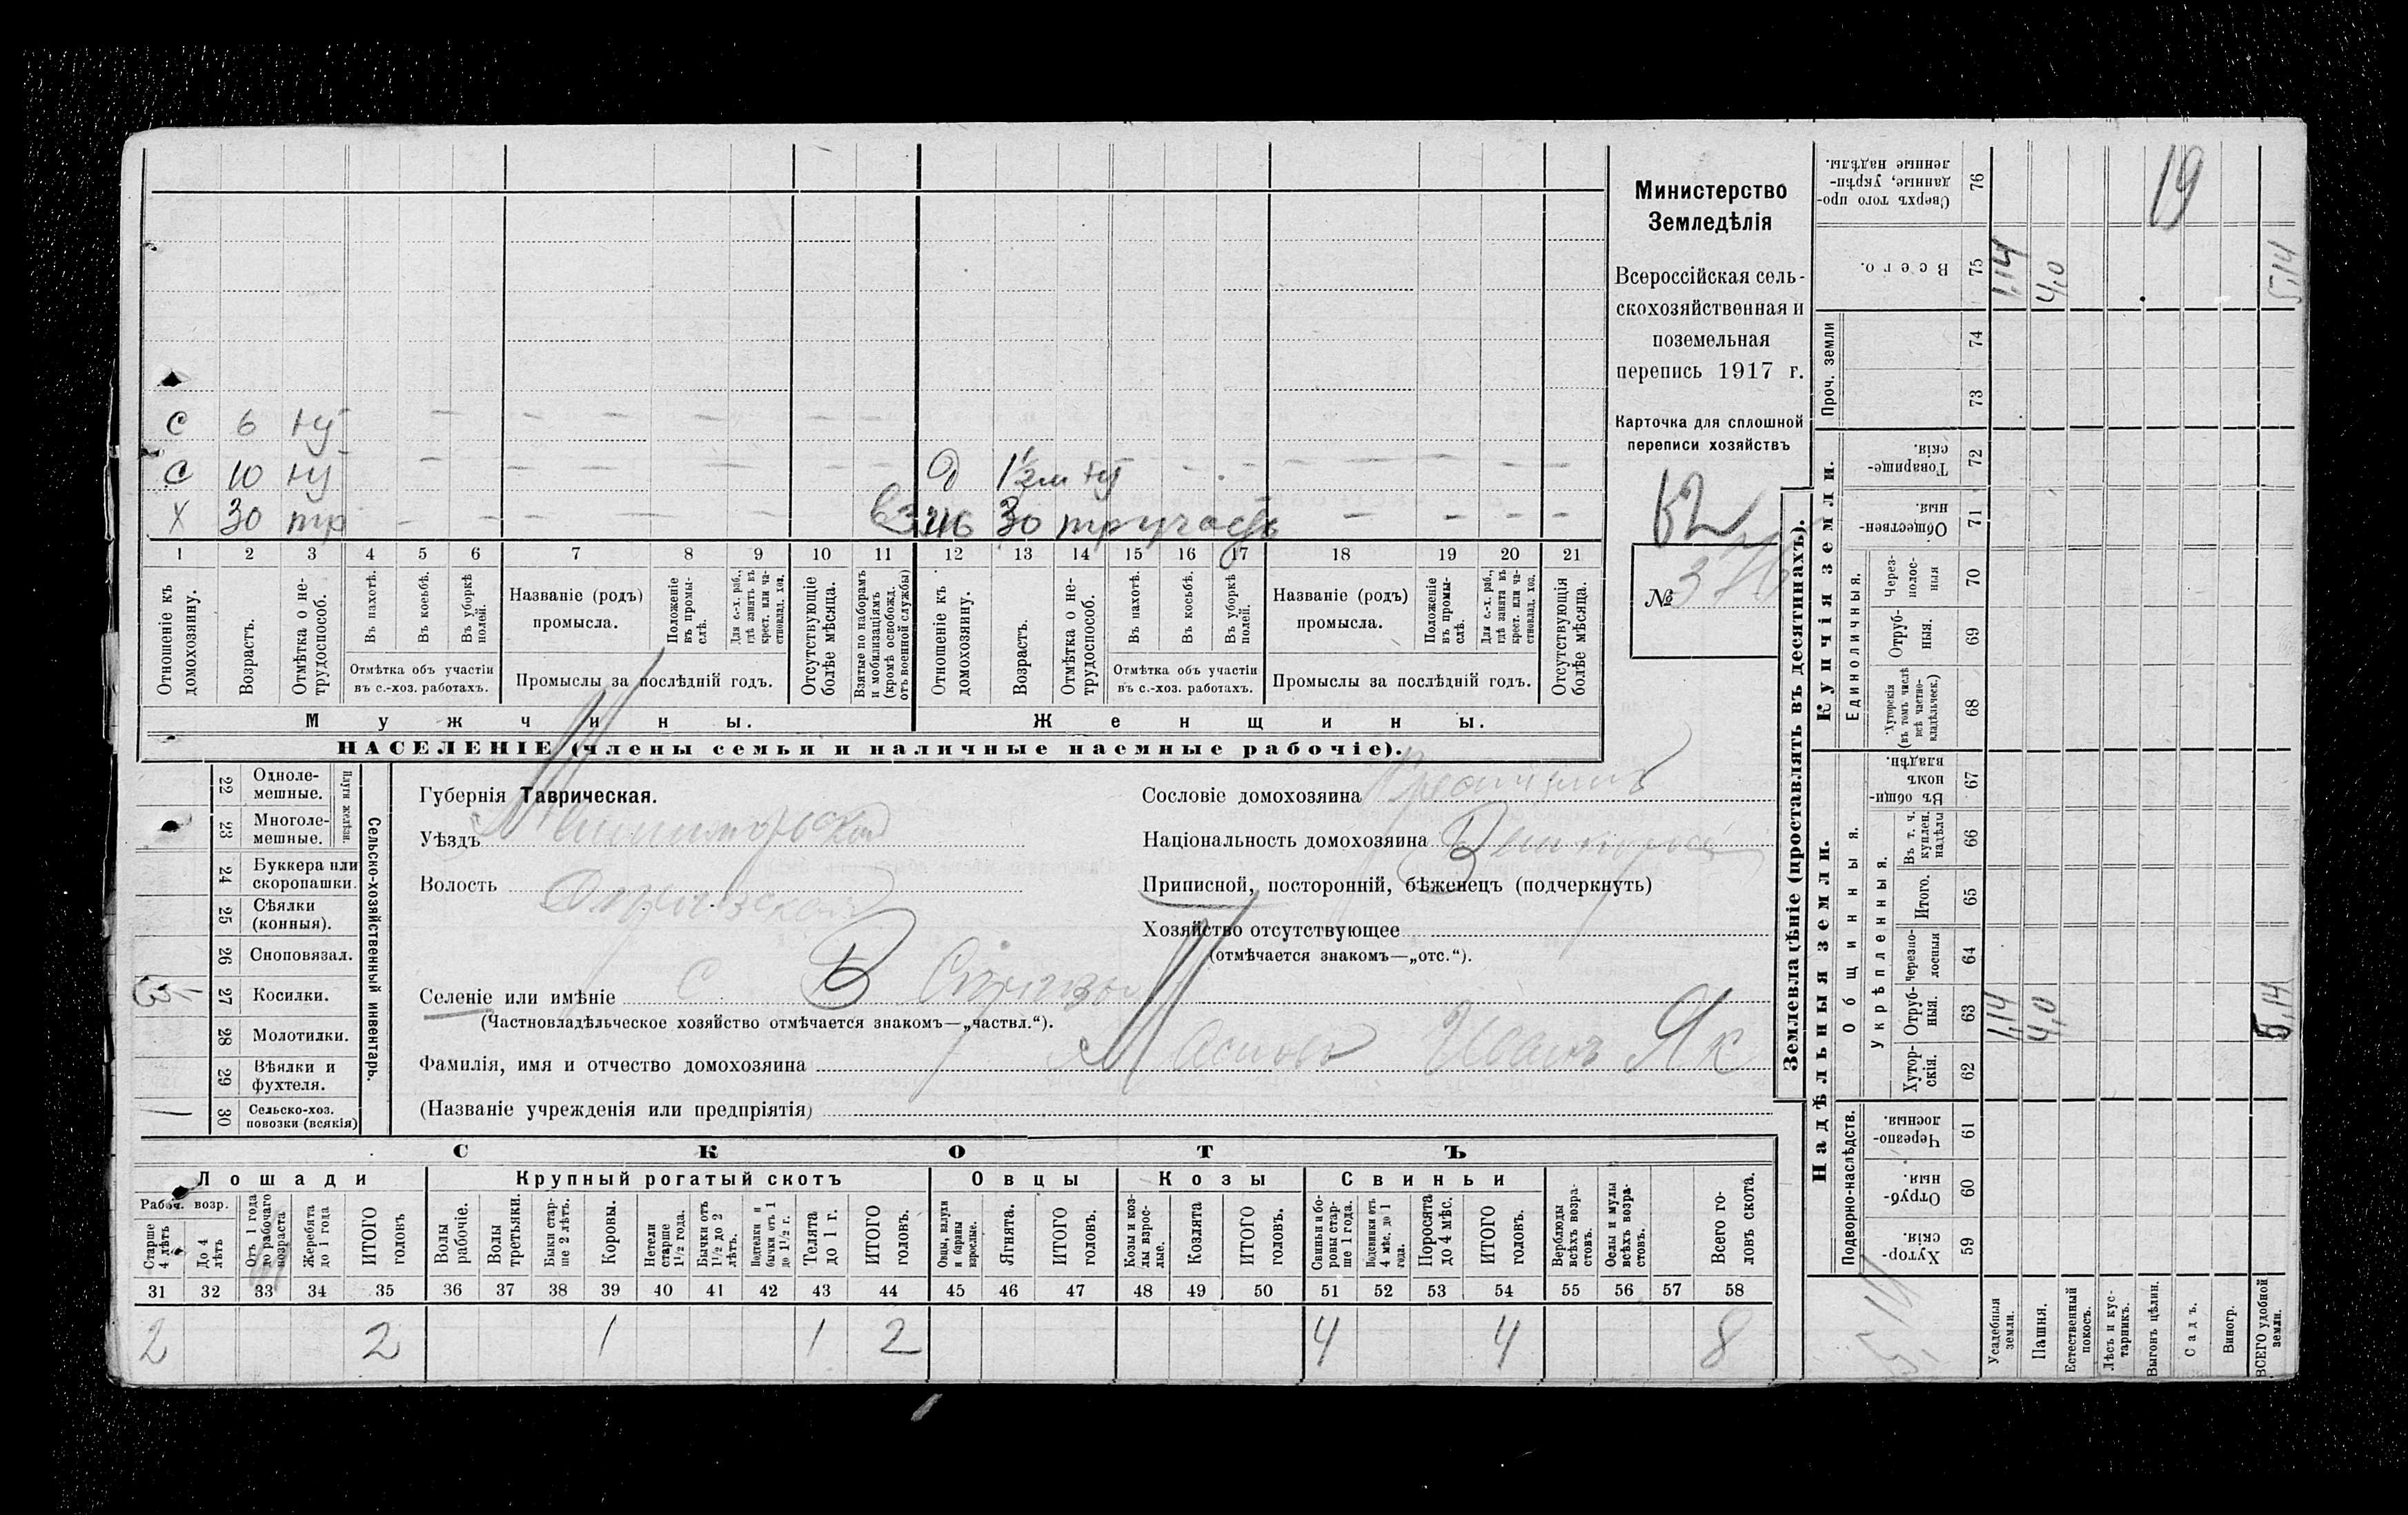 С 6 ну
С 10 ну
Х 30 тр вз
Ж 30 тр участь
Д 1½ м ну
1 2 3 4 5 6 7 8 9 10 11 12 13 14 15 16 17 18 19 20 21
Отношеніе къ домохозяину.
Возрастъ.
Отмѣтка о не-трудоспособ.
Въ пахотѣ.
Въ косьбѣ.
Въ уборкѣ полей.
Отмѣтка объ участіи въ с.-хоз. работахъ.
Названіе (родъ) промысла.
Положеніе въ промы-слѣ.
Для с.-х. раб., гдѣ занятъ въ крест. или ча-стновлад. хоз.
Промыслы за послѣдній годъ.
Отсутствующіе болѣе мѣсяца.
Взятые по наборамъ и мобилизаціямъ (кромѣ освобожд. отъ военной службы)
Отношеніе къ домохозяину.
Возрастъ.
Отмѣтка о не-трудоспособ.
Въ пахотѣ.
Въ косьбѣ.
Въ уборкѣ полей.
Отмѣтка объ участіи въ с.-хоз. работахъ.
Названіе (родъ) промысла.
Положеніе въ промы-слѣ.
Для с.-х. раб., гдѣ занята въ крест. или ча-стновлад. хоз.
Промыслы за послѣдній годъ.
Отсутствующія болѣе мѣсяца.
Мужчины. Женщины.
НАСЕЛЕНІЕ (члены семьи и наличные наемные рабочіе).
Министерство
Земледѣлія
Всероссійская сель-
скохозяйственная и
поземельная
перепись 1917 г.
Карточка для сплошной
переписи хозяйствъ
№ 376
22 Одноле-мешные.
23 Многоле-мешные.
Плуги желѣзн.
24 Буккера или скоропашки.
25 Сѣялки (конныя).
26 Сноповязал.
27 Косилки.
28 Молотилки.
29 Вѣялки и фухтеля.
30 Сельско-хоз. повозки (всякія) 1
Сельско-хозяйственный инвентарь.
Губернія Таврическая.
Уѣздъ Мелитопольскій
Волость
Селеніе или имѣніе С. Б
(Частновладѣльческое хозяйство отмѣчается знакомъ—„частвл.“).
Фамилія, имя и отчество домохозяина Иванъ Як
(Названіе учрежденія или предпріятія)
Сословіе домохозяина Крестьянъ
Національность домохозяина Великоросс
Приписной, посторонній, бѣженецъ (подчеркнуть)
Хозяйство отсутствующее
(отмѣчается знакомъ—„отс.“).
СКОТЪ
Лошади Крупный рогатый скотъ Овцы Козы Свиньи
Рабоч. возр.
Старше 4 лѣтъ
До 4 лѣтъ
Отъ 1 года до рабочаго возраста
Жеребята до 1 года
ИТОГО головъ
Волы рабочіе.
Волы третьяки.
Быки стар-ше 2 лѣтъ.
Коровы.
Нетели старше 1½ года.
Бычки отъ 1½ до 2 лѣтъ.
Подтелки и бычки отъ 1 до 1½ г.
Телята до 1 г.
ИТОГО головъ.
Овцы, валухи и бараны взрослые.
Ягнята.
ИТОГО головъ.
Козы и коз-лы взрос-лые.
Козлята
ИТОГО головъ.
Свиньи и бо-ровы стар-ше 1 года.
Подсвинки отъ 4 мѣс. до 1 года.
Поросята до 4 мѣс.
ИТОГО головъ.
Верблюды всѣхъ возра-стовъ.
Ослы и мулы всѣхъ возра-стовъ.
Всего го-ловъ скота.
31 32 33 34 35 36 37 38 39 40 41 42 43 44 45 46 47 48 49 50 51 52 53 54 55 56 57 58
2 2 1 1 2 4 4 8
Землевладѣніе (проставлять въ десятинахъ).
Надѣльныя земли. Купчія земли. Проч. земли
Подворно-наслѣдств.
Общинныя.
Укрѣпленныя.
Единоличныя.
Хутор-скія. 59
Отруб-ныя. 60
Черезпо-лосныя. 61
Хутор-скія. 62
Отруб-ныя. 63
Черезпо-лосныя 64
Итого. 65
Въ т. ч. куплен. надѣлы 66
Въ общи-номъ владѣн. 67
Хуторскія (въ томъ числѣ всѣ частно-владѣльческ.) 68
Отруб-ныя. 69
Через-полос-ныя 70
Обществен-ныя. 71
Товарище-скія. 72
73
74
Всего. 75
Сверхъ того про-данные, укрѣп-ленные надѣлы. 76
Усадебныя земли. 1,14 1,14
Пашня. 4,0 4,0
Естественный покосъ.
Лѣсъ и кус-тарникъ.
Выгонъ цѣлин.
Садъ.
Виногр.
ВСЕГО удобной земли. 5,14 5,14
19
5,14